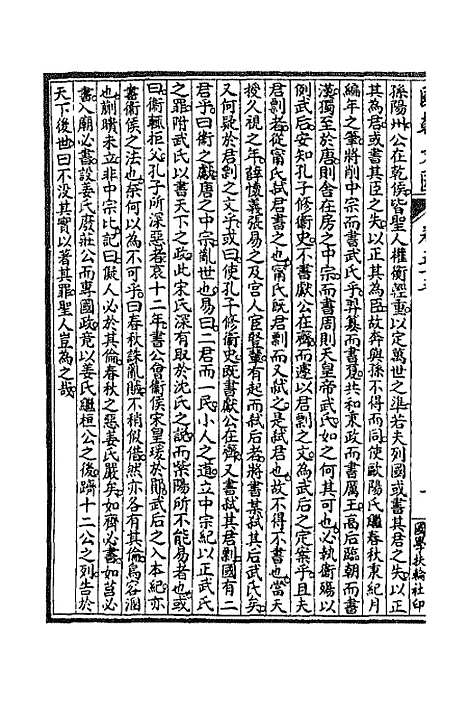 孫陽州公在乾侯皆聖人權衡輕重以定萬世之準若夫列國或書其君之失以正
其為君或書其臣之失以正其為臣故奔與孫不得而同使歐陽氏繼春秋秉紀月
編年之筆將削中宗而書武氏乎羿篡而書夏共和秉政而書厲王高后臨朝而書
漢獨至於唐則舍在房之中宗而書周則天皇帝武氏如之何其可也必執衛殤以
例武后安知孔子修衛史不書獻公在齊而遽以君剽之文為武后之定案乎且夫
君剽者從甯氏弒君書之也甯氏既君剽而又弒之是弒君也故不得不書也當天
授久視之年薛懷義張易之及宮人宦豎輩有起而弒后者將書某弒其后武氏矣
又何疑於君剽之文乎或曰使孔子修衛史既書獻公在齊又書弒其君剽國有二
君乎曰衛之獻唐之中宗亂世也易曰二君而一民小人之道立中宗紀以正武氏
之罪附武氏以書天下之政此宋氏深有取於沈氏之說而紫陽所不能易者也或
曰衛輒拒父孔子所深惡者哀十二年書公會衛侯宋皇瑗於鄖武后之入本紀亦
書衛侯之法也奈何以為不可乎曰春秋誅亂賊不稍似借然亦各有其倫烏容溷
也蒯聵未立非中宗比記曰儗人必於其倫春秋之惡姜氏嚴矣如齊必書如莒必
書入廟必書設姜氏廢莊公而專國政竟以姜氏繼桓公之後躋十二公之列告於
天下後世曰不沒其實以著其罪聖人豈為之哉
國學扶輪社印